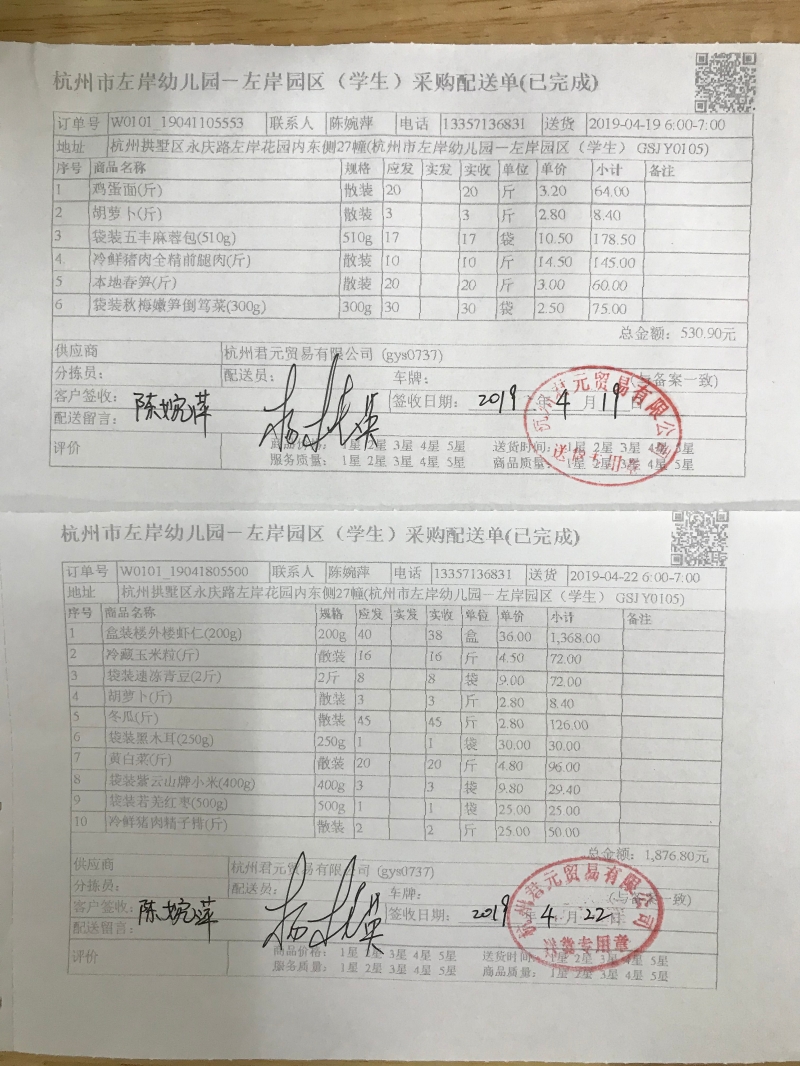 杭州市左岸幼儿园－左岸园区（学生）采购配送单(已完成)
订单号 W0101_19041105553 联系人 陈婉萍 电话 13357136831 送货 2019-04-19 6:00-7:00
地址 杭州拱墅区永庆路左岸花园内东侧27幢(杭州市左岸幼儿园－左岸园区（学生） GSJY0105)
序号 商品名称 规格 应发 实发 实收 单位 单价 小计 备注
1 鸡蛋面(斤) 散装 20 20 斤 3.20 64.00
2 胡萝卜(斤) 散装 3 3 斤 2.80 8.40
3 袋装五丰麻蓉包(510g) 510g 17 17 袋 10.50 178.50
4 冷鲜猪肉全精前腿肉(斤) 散装 10 10 斤 14.50 145.00
5 本地春笋(斤) 散装 20 20 斤 3.00 60.00
6 袋装秋梅嫩笋倒笃菜(300g) 300g 30 30 袋 2.50 75.00
总金额：530.90元
供应商 杭州君元贸易有限公司 (gys0737)
分拣员： 配送员： 车牌： 与备案一致)
客户签收： 陈婉萍 签收日期： 2019 年 4 月 19 日
配送留言：
评价 商品价格： 1星 2星 3星 4星 5星 送货时间： 1星 2星 3星 4星 5星
服务质量： 1星 2星 3星 4星 5星 商品质量： 1星 2星 3星 4星 5星
杭州君元贸易有限公司
杭州市左岸幼儿园－左岸园区（学生）采购配送单(已完成)
订单号 W0101_19041805500 联系人 陈婉萍 电话 13357136831 送货 2019-04-22 6:00-7:00
地址 杭州拱墅区永庆路左岸花园内东侧27幢(杭州市左岸幼儿园－左岸园区（学生） GSJY0105)
序号 商品名称 规格 应发 实发 实收 单位 单价 小计 备注
1 盒装楼外楼虾仁(200g) 200g 40 38 盒 36.00 1,368.00
2 冷藏玉米粒(斤) 散装 16 16 斤 4.50 72.00
3 袋装速冻青豆(2斤) 2斤 8 8 袋 9.00 72.00
4 胡萝卜(斤) 散装 3 3 斤 2.80 8.40
5 冬瓜(斤) 散装 45 45 斤 2.80 126.00
6 袋装黑木耳(250g) 250g 1 1 袋 30.00 30.00
7 黄白菜(斤) 散装 20 20 斤 4.80 96.00
8 袋装紫云山牌小米(400g) 400g 3 3 袋 9.80 29.40
9 袋装若羌红枣(500g) 500g 1 1 袋 25.00 25.00
10 冷鲜猪肉精子排(斤) 散装 2 2 斤 25.00 50.00
总金额：1,876.80元
供应商 杭州君元贸易有限公司 (gys0737)
分拣员： 配送员： 车牌： (与备案一致)
客户签收： 陈婉萍 签收日期： 2019 年 4 月 22
配送留言：
评价 商品价格： 1星 2星 3星 4星 5星 送货时间： 1星 2星 3星 4星 5星
服务质量： 1星 2星 3星 4星 5星 商品质量： 1星 2星 3星 4星 5星
杭州君元贸易有限公司